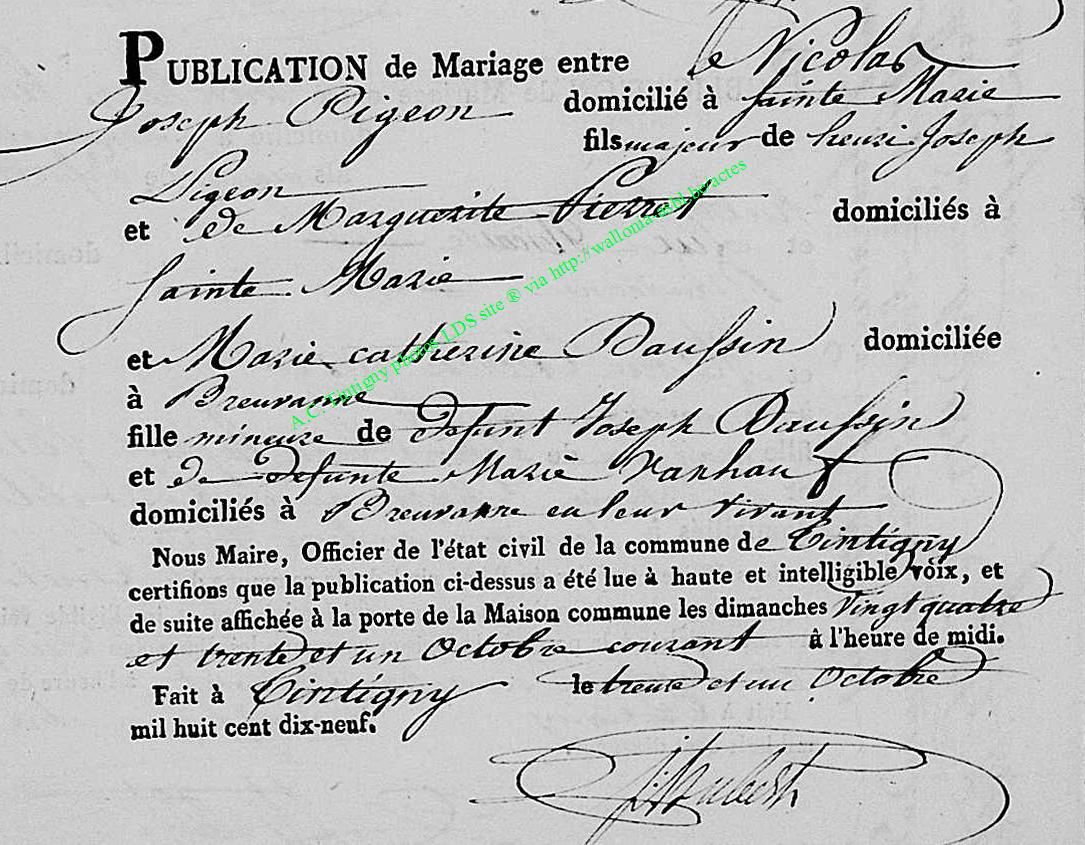 PUBLICATION de Mariage entre le Nicolas
Joseph Pigeon domicilié à Sainte Marie
fils majeur de henri Joseph
Pigeon
et de Marguerite Pierret domiciliés à
Sainte Marie
et Marie catherine Daussin domiciliée
à Breuvanne
fille mineure de defunt Joseph Daussin
et de defunte Marie Vanhauf
domiciliés à Breuvanne en leur vivant
Nous Maire, Officier de l'état civil de la commune de Tintigny
certifions que la publication ci-dessus a été lue à haute et intelligible voix, et
de suite affichée à la porte de la Maison commune les dimanches Vingt quatre
et trente et un Octobre courant à l'heure de midi.
Fait à Tintigny le trente et un Octobre
mil huit cent dix-neuf.
A.C. Tintigny photos LDS site ® via http://wallonia-asbl.be/actes